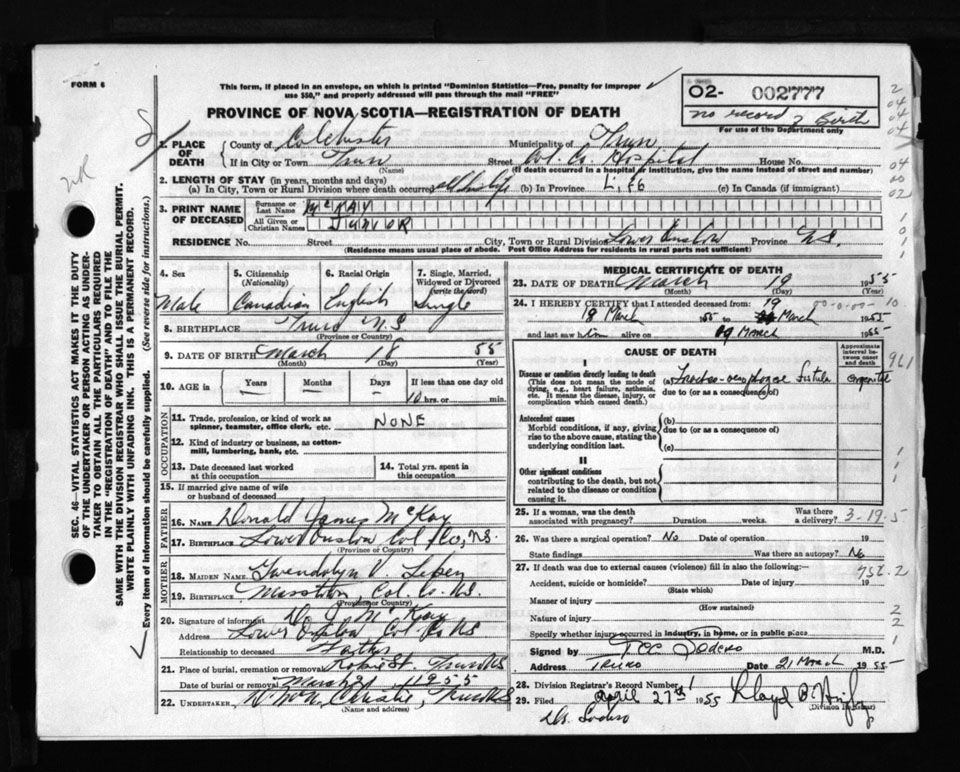 FORM 6
This form, if placed in an envelope, on which is printed "Dominion Statistics—Free, penalty for improper
use $50," and properly addressed will pass through the mail "FREE"
PROVINCE OF NOVA SCOTIA—REGISTRATION OF DEATH
O2- 002777
no record of birth
For use of the Department only
1. PLACE OF DEATH
County of Colchester Municipality of Truro
If in City or Town Truro Street Col. Co. Hospital House No.
(Name) (If death occurred in a hospital or institution, give the name instead of street and number)
2. LENGTH OF STAY (in years, months and days)
(a) In City, Town or Rural Division where death occurred all his life (b) In Province Life (c) In Canada (if immigrant)
3. PRINT NAME OF DECEASED
Surname or Last Name McKAY
All Given or Christian Names JUNIOR
RESIDENCE No. Street City, Town or Rural Division Lower Onslow Province N.S.
(Residence means usual place of abode. Post Office Address for residents in rural parts not sufficient)
SEC. 46—VITAL STATISTICS ACT MAKES IT THE DUTY
OF THE UNDERTAKER OR PERSON ACTING AS UNDER-
TAKER TO OBTAIN ALL THE PARTICULARS REQUIRED
IN THE "REGISTRATION OF DEATH" AND TO FILE THE
SAME WITH THE DIVISION REGISTRAR WHO SHALL ISSUE THE BURIAL PERMIT.
WRITE PLAINLY WITH UNFADING INK. THIS IS A PERMANENT RECORD.
Every item of information should be carefully supplied. (See reverse side for instructions.)
4. Sex
Male
5. Citizenship
(Nationality)
Canadian
6. Racial Origin
English
7. Single, Married,
Widowed or Divorced
(write the word)
Single
8. BIRTHPLACE Truro N.S
(Province or Country)
9. DATE OF BIRTH March 18 55
(Month) (Day) (Year)
10. AGE in Years Months Days If less than one day old
10 hrs. or min.
OCCUPATION
11. Trade, profession, or kind of work as
spinner, teamster, office clerk, etc. NONE
12. Kind of industry or business, as cotton-
mill, lumbering, bank, etc.
13. Date deceased last worked
at this occupation
14. Total yrs. spent in
this occupation
15. If married give name of wife
or husband of deceased
FATHER
16. NAME Donald James McKay
17. BIRTHPLACE Lower Onslow Col Co, N.S.
(Province or Country)
MOTHER
18. MAIDEN NAME Gwendolyn V
19. BIRTHPLACE Col. Co. N.S.
(Province or Country)
20. Signature of informant D. J. McKay
Address Lower Onslow Col. Co NS
Relationship to deceased Father
21. Place of burial, cremation or removal Robie St. Truro NS
Date of burial or removal March 21 1955
22. UNDERTAKER Christie, Truro NS
(Name and address)
MEDICAL CERTIFICATE OF DEATH
23. DATE OF DEATH March 19 1955
(Month) (Day) (Year)
24. I HEREBY CERTIFY that I attended deceased from
18 March 1955 to 19 March 1955
and last saw him alive on 19 March 1955
CAUSE OF DEATH
Approximate
interval be-
tween onset
and death
I
Disease or condition directly leading to death
(This does not mean the mode of
dying, e.g., heart failure, asthenia,
etc. It means the disease, injury, or
complication which caused death.)
(a) Tracheo-oesophageal fistula congenital
due to (or as a consequence of)
Antecedent causes
Morbid conditions, if any, giving
rise to the above cause, stating the
underlying condition last.
(b)
due to (or as a consequence of)
(c)
II
Other significant conditions
contributing to the death, but not
related to the disease or condition
causing it.
25. If a woman, was the death
associated with pregnancy? Duration weeks. Was there
a delivery? 3-19-5
26. Was there a surgical operation? No Date of operation 19
State findings Was there an autopsy? No
27. If death was due to external causes (violence) fill in also the following:—
756.2
Accident, suicide or homicide? Date of injury 19
(State which)
Manner of injury
(How sustained)
Nature of injury
Specify whether injury occurred in industry, in home, or in public place
Signed by M.D.
Address Truro Date 21 March 1955
28. Division Registrar's Record Number
29. Filed April 27th 1955 Lloyd
(Division Registrar)